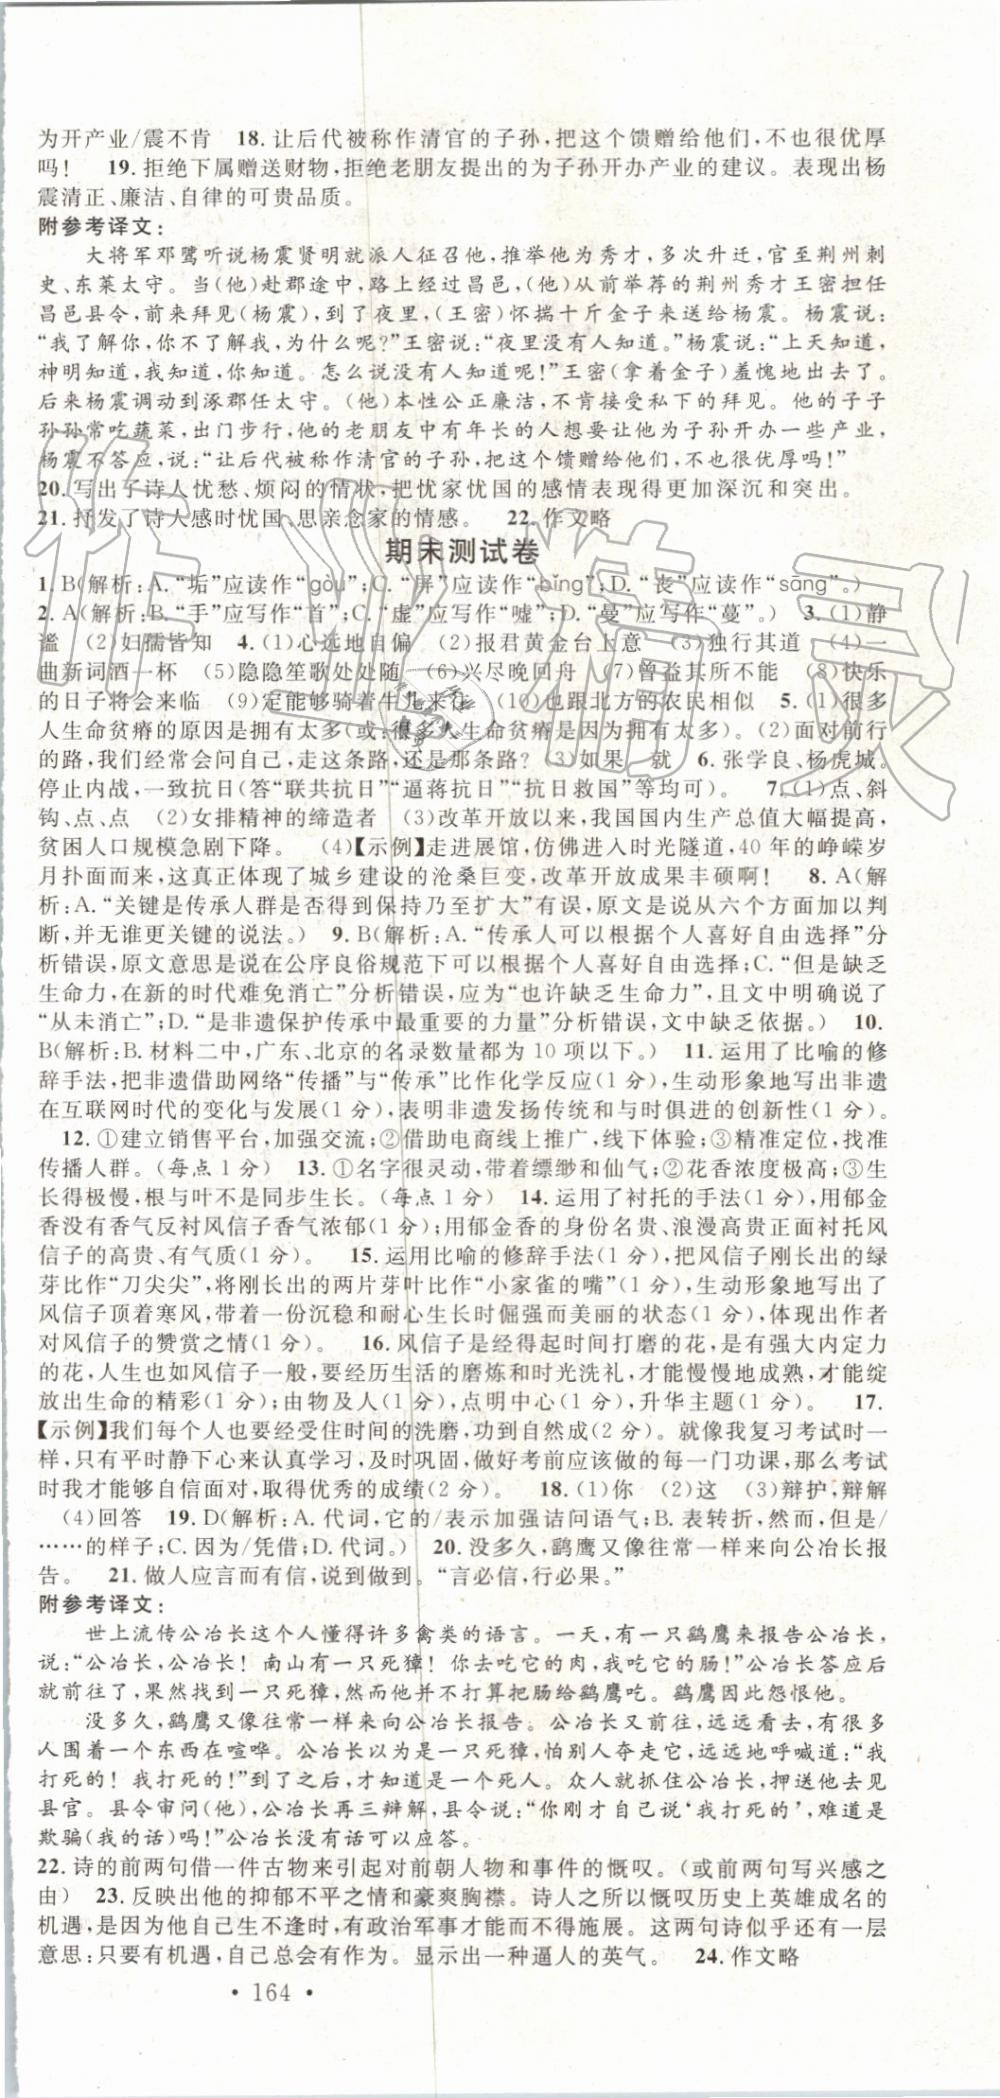 为开产业/震不肯　18. 让后代被称作清官的子孙,把这个馈赠给他们,不也很优厚
吗!　19. 拒绝下属赠送财物,拒绝老朋友提出的为子孙开办产业的建议。表现出杨
震清正、廉洁、自律的可贵品质。
附参考译文:
大将军邓骘听说杨震贤明就派人征召他,推举他为秀才,多次升迁,官至荆州刺
史、东莱太守。当(他)赴郡途中,路上经过昌邑,(他)从前举荐的荆州秀才王密担任
昌邑县令,前来拜见(杨震),到了夜里,(王密)怀揣十斤金子来送给杨震。杨震说:
“我了解你,你不了解我,为什么呢?”王密说:“夜里没有人知道。”杨震说:“上天知道,
神明知道,我知道,你知道。怎么说没有人知道呢!”王密(拿着金子)羞愧地出去了。
后来杨震调动到涿郡任太守。(他)本性公正廉洁,不肯接受私下的拜见。他的子子
孙孙常吃蔬菜,出门步行,他的老朋友中有年长的人想要让他为子孙开办一些产业,
杨震不答应,说:“让后代被称作清官的子孙,把这个馈赠给他们,不也很优厚吗!”
20. 写出了诗人忧愁、烦闷的情状,把忧家忧国的感情表现得更加深沉和突出。
21. 抒发了诗人感时忧国、思亲念家的情感。　22. 作文略
期末测试卷
1. B(解析:A.“垢”应读作“gòu”;C.“屏”应读作“bǐng”;D.“丧”应读作“sāng”。)
2. A(解析:B.“手”应写作“首”;C.“虚”应写作“嘘”;D.“曼”应写作“蔓”。)　3. (1)静
谧　(2)妇孺皆知　4. (1)心远地自偏　(2)报君黄金台上意　(3)独行其道　(4)一
曲新词酒一杯　(5)隐隐笙歌处处随　(6)兴尽晚回舟　(7)曾益其所不能　(8)快乐
的日子将会来临　(9)定能够骑着牛儿来往　(10)也跟北方的农民相似　5. (1)很多
人生命贫瘠的原因是拥有太多(或:很多人生命贫瘠是因为拥有太多)。(2)面对前行
的路,我们经常会问自己,走这条路,还是那条路?　(3)如果　就　6. 张学良、杨虎城。
停止内战,一致抗日(答“联共抗日”“逼蒋抗日”“抗日救国”等均可)。　7. (1)点、斜
钩、点、点　(2)女排精神的缔造者　(3)改革开放以来,我国国内生产总值大幅提高,
贫困人口规模急剧下降。　(4)【示例】走进展馆,仿佛进入时光隧道,40 年的峥嵘岁
月扑面而来,这真正体现了城乡建设的沧桑巨变,改革开放成果丰硕啊!　8. A(解
析:A.“关键是传承人群是否得到保持乃至扩大”有误,原文是说从六个方面加以判
断,并无谁更关键的说法。)　9. B(解析:A.“传承人可以根据个人喜好自由选择”分
析错误,原文意思是说在公序良俗规范下可以根据个人喜好选择;C.“但是缺乏
生命力,在新的时代难免消亡”分析错误,应为“也许缺乏生命力”,且文中明确说了
“从未消亡”;D.“是非遗保护传承中最重要的力量”分析错误,文中缺乏依据。)　10.
B(解析:B. 材料二中,广东、北京的名录数量都为 10 项以下。)　11. 运用了比喻的修
辞手法,把非遗借助网络“传播”与“传承”比作化学反应(1 分),生动形象地写出非遗
在互联网时代的变化与发展(1 分),表明非遗发扬传统和与时俱进的创新性(1 分)。
12. ①建立销售平台,加强交流;②借助电商线上推广,线下体验;③精准定位,找准
传播人群。(每点 1 分)　13. ①名字很灵动,带着缥缈和仙气;②花香浓度极高;③生
长得极慢,根与叶不是同步生长。(每点 1 分)　14. 运用了衬托的手法(1 分),用郁金
香没有香气反衬风信子香气浓郁(1 分);用郁金香的身份名贵、浪漫高贵正面衬托风
信子的高贵、有气质(1 分)。　15. 运用比喻的修辞手法(1 分),把风信子刚长出的绿
芽比作“刀尖尖”,将刚长出的两片芽叶比作“小家雀的嘴”(1 分),生动形象地写出了
风信子顶着寒风,带着一份沉稳和耐心生长时倔强而美丽的状态(1 分),体现出作者
对风信子的赞赏之情(1 分)。　16. 风信子是经得起时间打磨的花,是有强大内定力
的花,人生也如风信子一般,要经历生活的磨炼和时光洗礼,才能慢慢地成熟,才能绽
放出生命的精彩(1 分);由物及人(1 分),点明中心(1 分),升华主题(1 分)。　17.
【示例】我们每个人也要经受住时间的洗磨,功到自然成(2 分)。就像我复习考试时一
样,只有平时静下心来认真学习,及时巩固,做好考前应该做的每一门功课,那么考试
时我才能够自信面对,取得优秀的成绩(2 分)。　18. (1)你　(2)这　(3)辩护,辩解
(4)回答　19. D(解析:A. 代词,它的/表示加强诘问语气;B. 表转折,然而,但是/
……的样子;C. 因为/凭借;D. 代词。)　20. 没多久,鹞鹰又像往常一样来向公冶长报
告。　21. 做人应言而有信,说到做到。“言必信,行必果。”
附参考译文:
世上流传公冶长这个人懂得许多禽类的语言。一天,有一只鹞鹰来报告公冶长,
说:“公冶长!公冶长!南山有一只死獐!你去吃它的肉,我吃它的肠!”公冶长答应后
就前往,果然找到一只死獐,然而他并不打算把肠给鹞鹰吃。鹞鹰因此怨恨他。
没多久,鹞鹰又像往常一样来向公冶长报告。公冶长又前往,远远看到,有很多
人围着一个东西在喧哗。公冶长认为是一只死獐,怕别人夺走它,远远地呼喊道:“我
打死的!我打死的!”到了之后,才知道是一个死人。众人就抓住公冶长,押送他去见
县官。县令审问(他),公冶长再三辩解,县令说:“你刚才自己说‘我打死的’,难道是
欺骗(我的话)吗!”公冶长没有话可以应答。
22. 诗的前两句借一件古物来引起对前朝人物和事件的慨叹。(或前两句写兴感之
由)　23. 反映出他的抑郁不平之情和豪爽胸襟。诗人之所以慨叹历史上英雄成名的
机遇,是因为他自己生不逢时,有政治军事才能而不得施展。这两句诗似乎还有一层
意思:只要有机遇,自己总会有作为。显示出一种逼人的英气。　24. 作文略
• 164 •
作业精灵